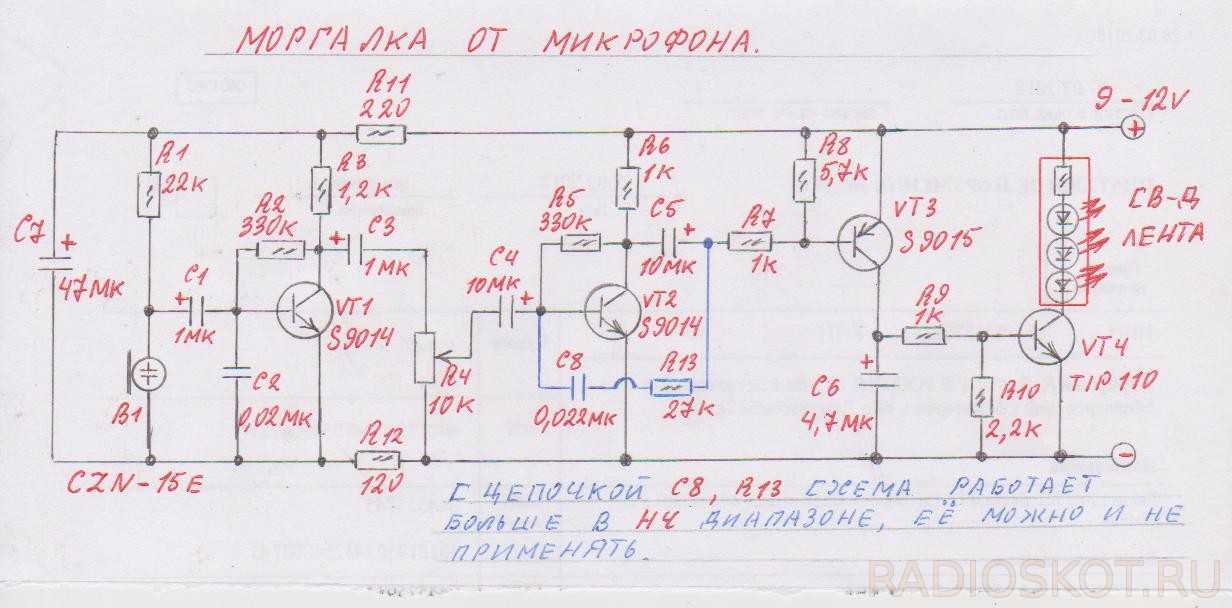 МОРГАЛКА ОТ МИКРОФОНА.
R11
220
9-12V
+
R1
22К
R3
1,2К
R6
1К
R8
5,7К
С7 +
47МК
R2
330К
+ С3
1МК
R5
330К
С5
+
10МК
R7
1К
VT3
S9015
СВ-Д
ЛЕНТА
С1
+
1МК
VT1
S9014
С4
10МК
+
VT2
S9014
R9
1К
VT4
TIP 110
В1
С2
0,02МК
R4
10К
С8
0,022МК
R13
27К
+
С6
4,7МК
R10
2,2К
CZN-15E
R12
120
-
С ЦЕПОЧКОЙ С8, R13 СХЕМА РАБОТАЕТ
БОЛЬШЕ В НЧ ДИАПАЗОНЕ, ЕЁ МОЖНО И НЕ
ПРИМЕНЯТЬ.
RADIOSKOT.RU